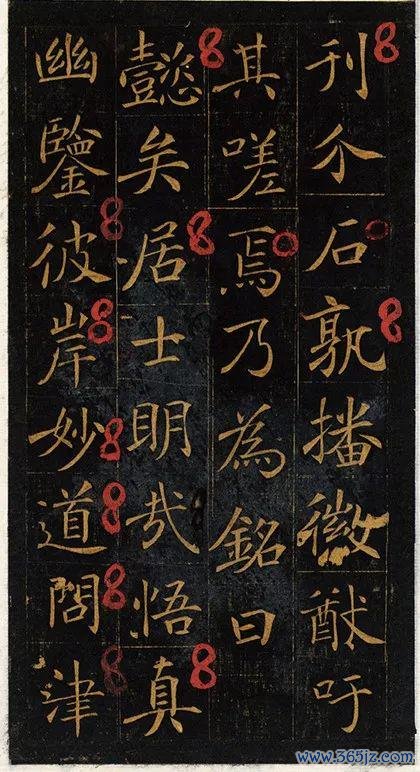 刊介石孰播徽猷吁
其嗟焉乃為銘曰
懿矣居士明哉悟真
幽鑒彼岸妙道問津
www.365jz.com